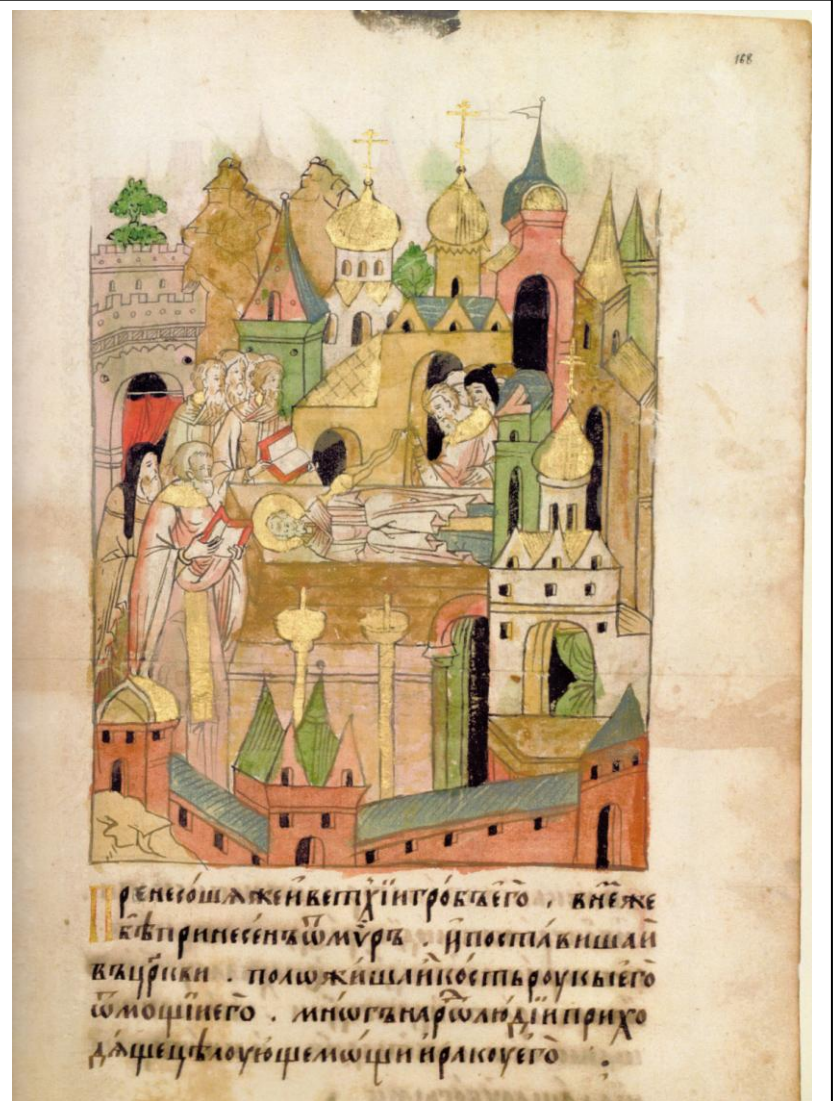 168
Пренесошѧ же и ветхїи гробъ его . в не́мже
бѣ принесенъ ѿ мѵръ . и постави́ша и
въ цр҃кви . положи́ша и́ кость роукы его
ѿ мощїи его . мнѡгъ нарѡ людїи прихо
дѧще цѣлоующе мѡщи и ракоу его .